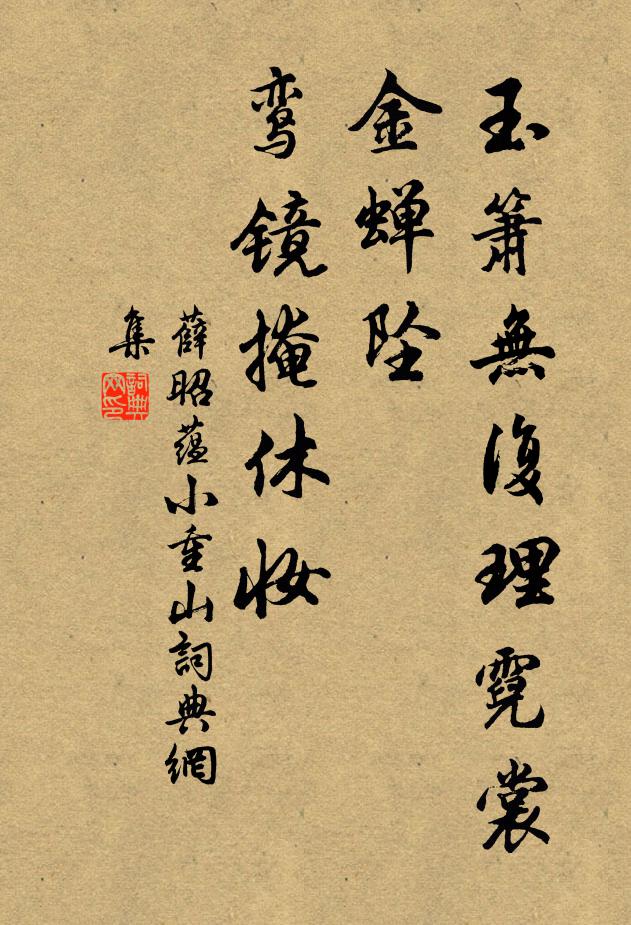 玉箫無復理霓裳
金蝉坠
鸾镜掩休妆
薛昭蕴小重山詞典網
集
詞典網印